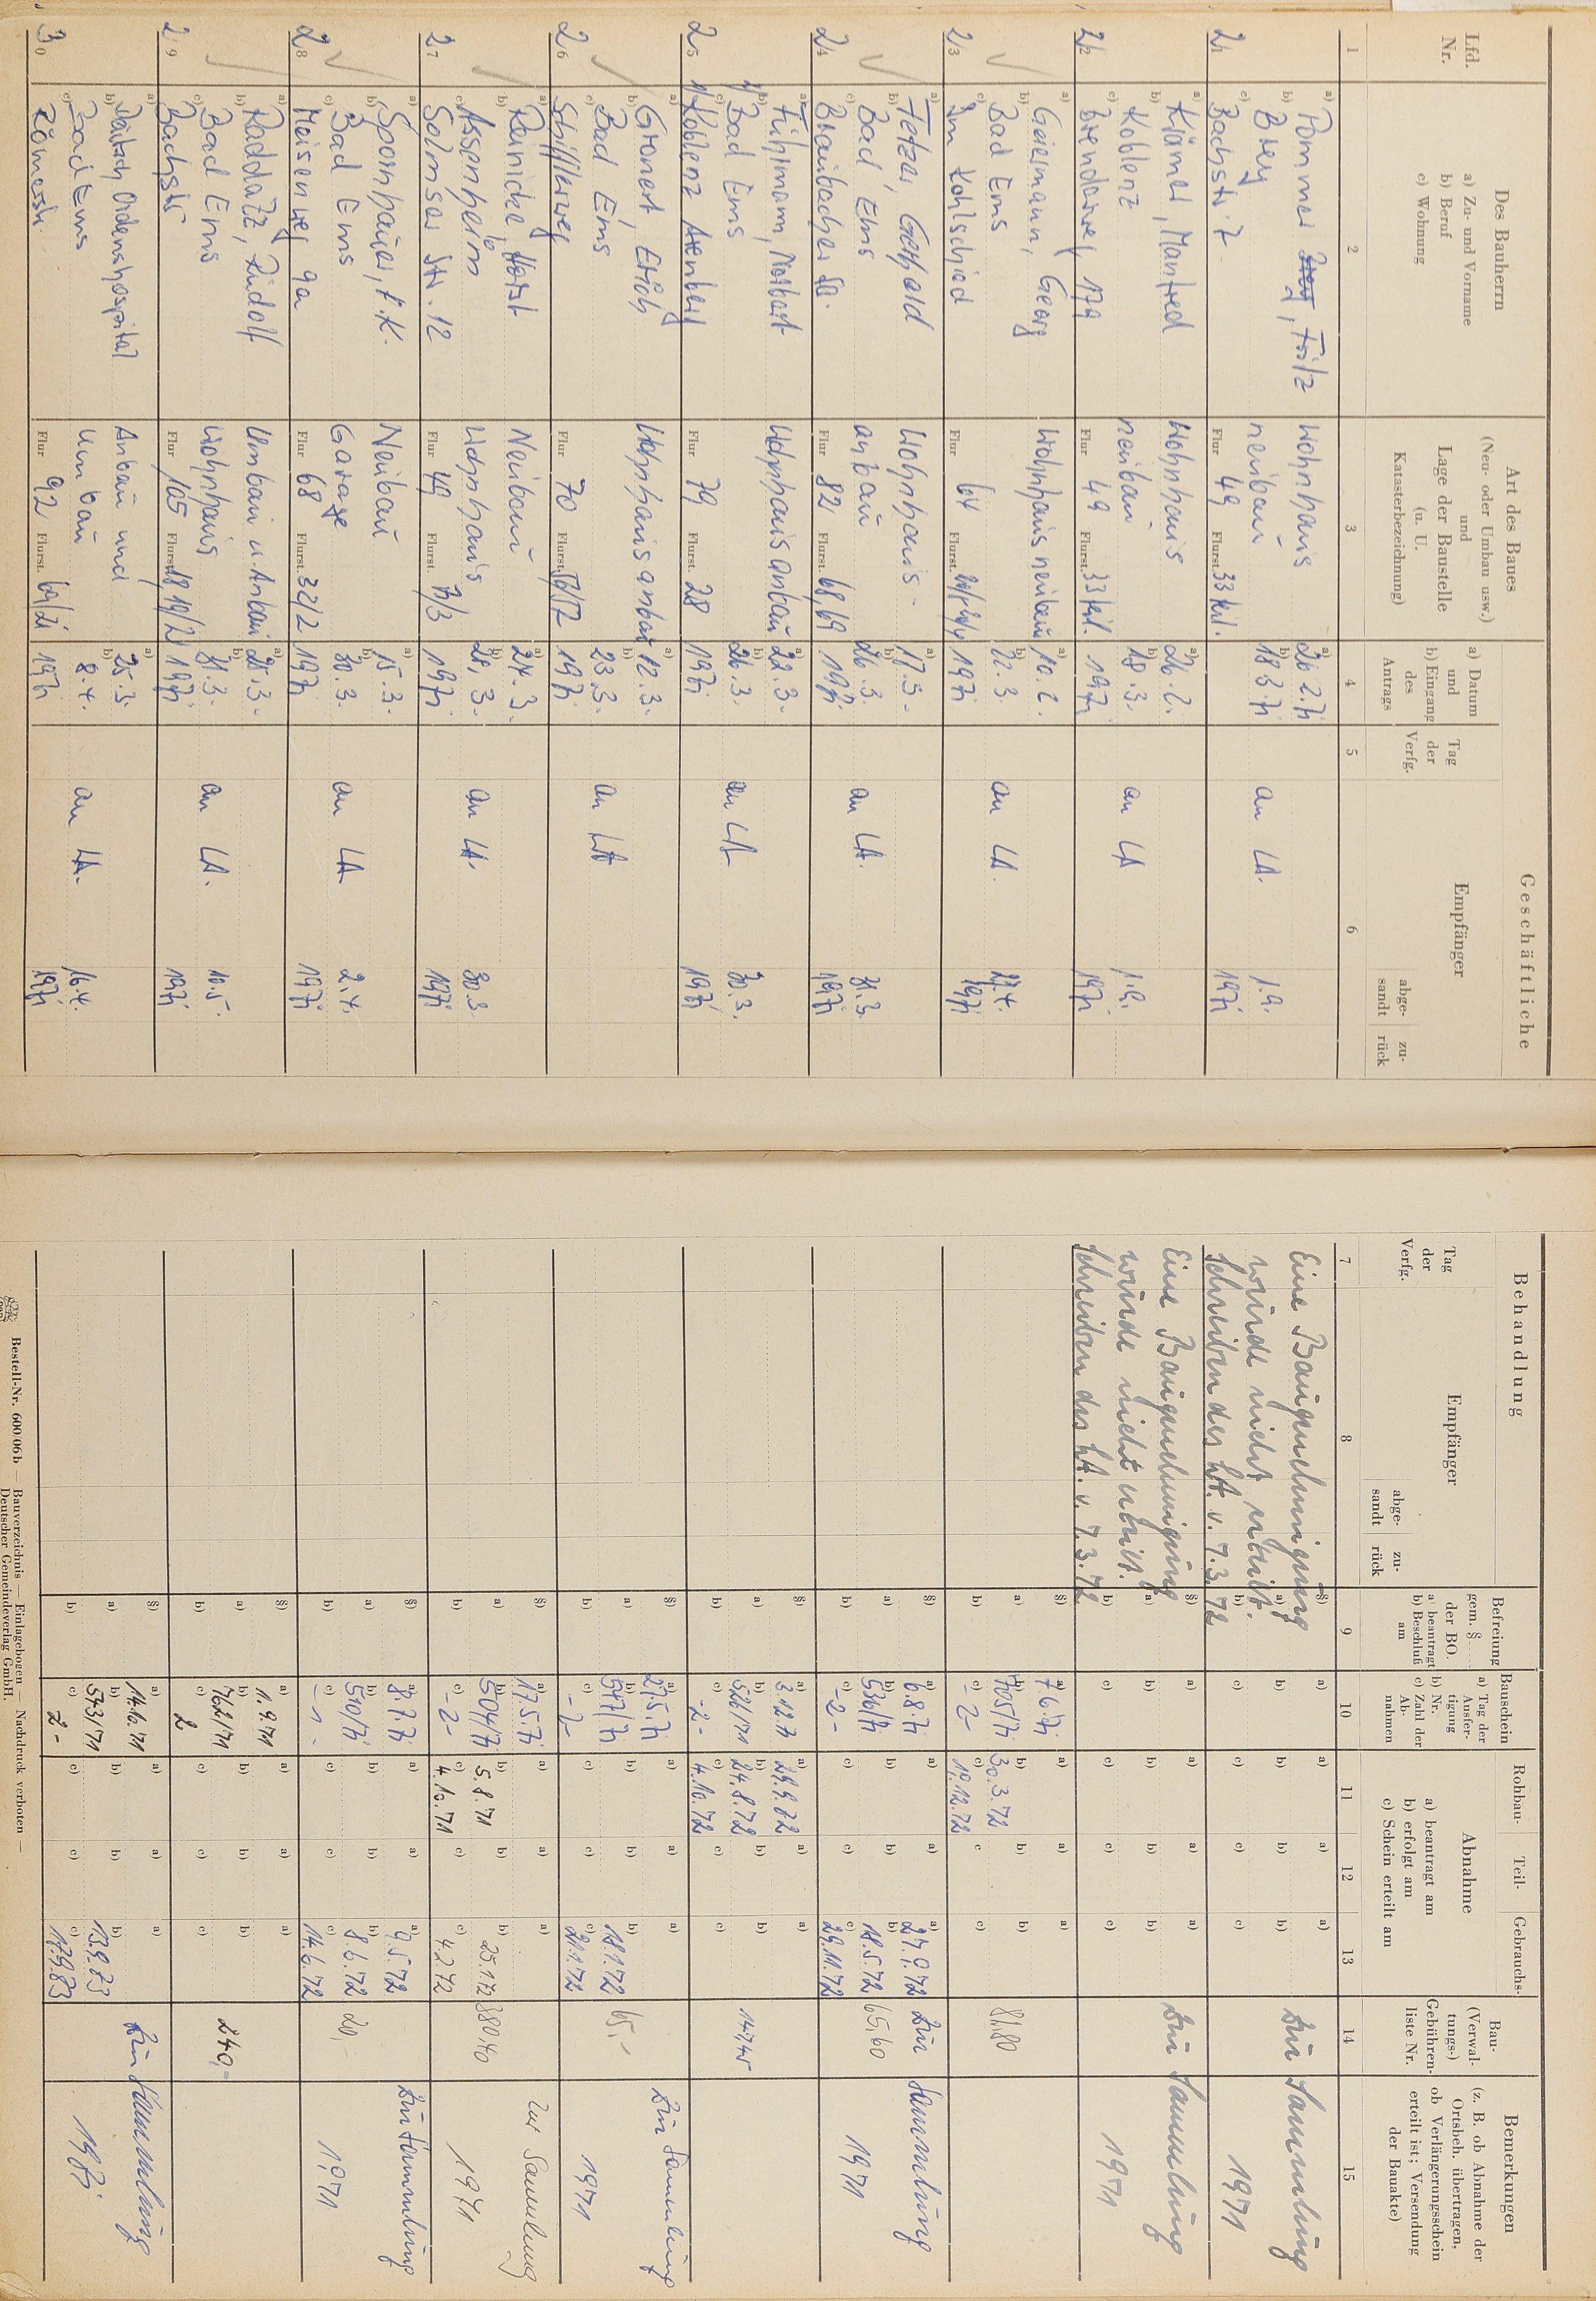 Geschäftliche
Lfd. Nr.
Des Bauherrn
a) Zu- und Vorname
b) Beruf
c) Wohnung
Art des Baues
(Neu- oder Umbau usw.)
und
Lage der Baustelle
(u. U.
Katasterbezeichnung)
a) Datum
und
b) Eingang
des
Antrags
Tag
der
Verfg.
Empfänger
abge-
sandt
zu-
rück
1 2 3 4 5 6
21
a) Pommer, Fritz
b) Berg
c) Bachstr. 7
Wohnhaus
neubau
Flur 49 Flurst. 33 teil.
a) 26.2.71
b) 18.3.71
an LA.
1.9.
1971
22
a) Krämer, Manfred
b) Koblenz
c) Brenderweg 179
Wohnhaus
neubau
Flur 49 Flurst. 33 teil.
a) 26.2.
b) 18.3.
1971
an LA
1.9.
1971
23
a) Geiermann, Georg
b) Bad Ems
c) Im Kohlschied
Wohnhausneubau
Flur 64 Flurst.
a) 10.2.
b) 22.3.
1971
an LA.
1971
24
a) Fetzer, Gerhold
b) Bad Ems
c) Braubacher Str.
Wohnhaus-
anbau
Flur 82 Flurst. 68,69
a) 17.3.
b) 26.3.
1971
an LA.
31.3.
1971
25
a) Führmann, Norbert
b) Bad Ems
c) Koblenz Arenberg
Wohnhausanbau
Flur 79 Flurst. 28
a) 22.3.
b) 26.3.
1971
an LA
30.3.
1971
26
a) Gronert, Erich
b) Bad Ems
c) Schifflerweg
Wohnhausanbau
Flur 70 Flurst.
a) 12.3.
b) 23.3.
1971
an LA
27
a) Reinicke, Horst
b) Assenheim
c) Solmser Str. 12
Neubau
Wohnhaus
Flur 49 Flurst. 73/3
a) 24.3.
b) 26.3.
1971
an LA.
30.3.
1971
28
a) Spornhauer, K.K.
b) Bad Ems
c) Meisenweg 9a
Neubau
Garage
Flur 68 Flurst. 32/2
a) 15.3.
b) 30.3.
1971
an LA
2.4.
1971
29
a) Raddatz, Rudolf
b) Bad Ems
c) Bachstr.
Umbau u. Anbau
Wohnhaus
Flur 105 Flurst. 1819/2
a) 25.3.
b) 31.3.
1971
an LA.
10.5.
1971
30
a) Deutsch Ordenshospital
b) Bad Ems
c) Römerstr.
Anbau und
Umbau
Flur 92 Flurst.
a) 25.3.
b) 8.4.
1971
an LA.
16.4.
1971
Behandlung
Tag
der
Verfg.
Empfänger
abge-
sandt
zu-
rück
Befreiung
gem. §
der BO.
a) beantragt
b) Beschluß
am
Bauschein
a) Tag der
Ausfer-
tigung
b) Nr.
c) Zahl der
Ab-
nahmen
Rohbau- Teil- Gebrauchs-
Abnahme
a) beantragt am
b) erfolgt am
c) Schein erteilt am
Bau-
(Verwal-
tungs-)
Gebühren-
liste Nr.
Bemerkungen
(z. B. ob Abnahme der
Ortsbeh. übertragen,
ob Verlängerungsschein
erteilt ist; Versendung
der Bauakte)
7 8 9 10 11 12 13 14 15
Eine Baugenehmigung
wurde nicht erteilt.
Schreiben des LA. v. 7.3.72
Zur Sammlung
1971
Eine Baugenehmigung
wurde nicht erteilt.
Schreiben des LA. v. 7.3.72
Zur Sammlung
1971
a) 7.6.71
b) 705/71
c) -2-
b) 30.3.72
c) 19.12.72
81,80
a) 6.8.71
b) 536/71
c) -2-
a) 27.9.72
b) 18.5.72
c) 29.11.72
65,60
Zur Sammlung
1971
a) 3.12.71
b) 526/71
c) -2-
a) 29.9.72
b) 24.8.72
c) 4.10.72
a) 27.5.71
b) 547/71
b) 18.1.72
c) 20.1.72
65,-
Zur Sammlung
1971
a) 17.5.71
b) 504/71
c) -2-
b) 5.8.71
c) 4.10.71
b) 25.1.72
c) 4.2.72
380,40
Zur Sammlung
1971
a) 8.7.71
b) 510/71
a) 9.5.72
b) 8.6.72
c) 14.6.72
20,-
Zur Sammlung
1971
a) 1.9.71
b) 762/71
c) 2
240,-
a) 14.10.71
b) 543/71
c) 2-
b) 13.9.83
c) 17.9.83
Zur Sammlung
1983
Bestell-Nr. 600/06b — Bauverzeichnis — Einlagebogen — Nachdruck verboten —
Deutscher Gemeindeverlag GmbH.